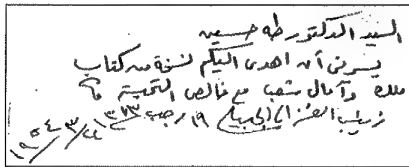 السيد الدكتور طه حسين
يسرنى أن اهدى اليكم نسخة من كتاب
ملك وآمال شعب مع خالص التحية
زينب الغزالي الجبيلي ١٩ رجب ١٣٧٣
٢٤/٣/١٩٥٤